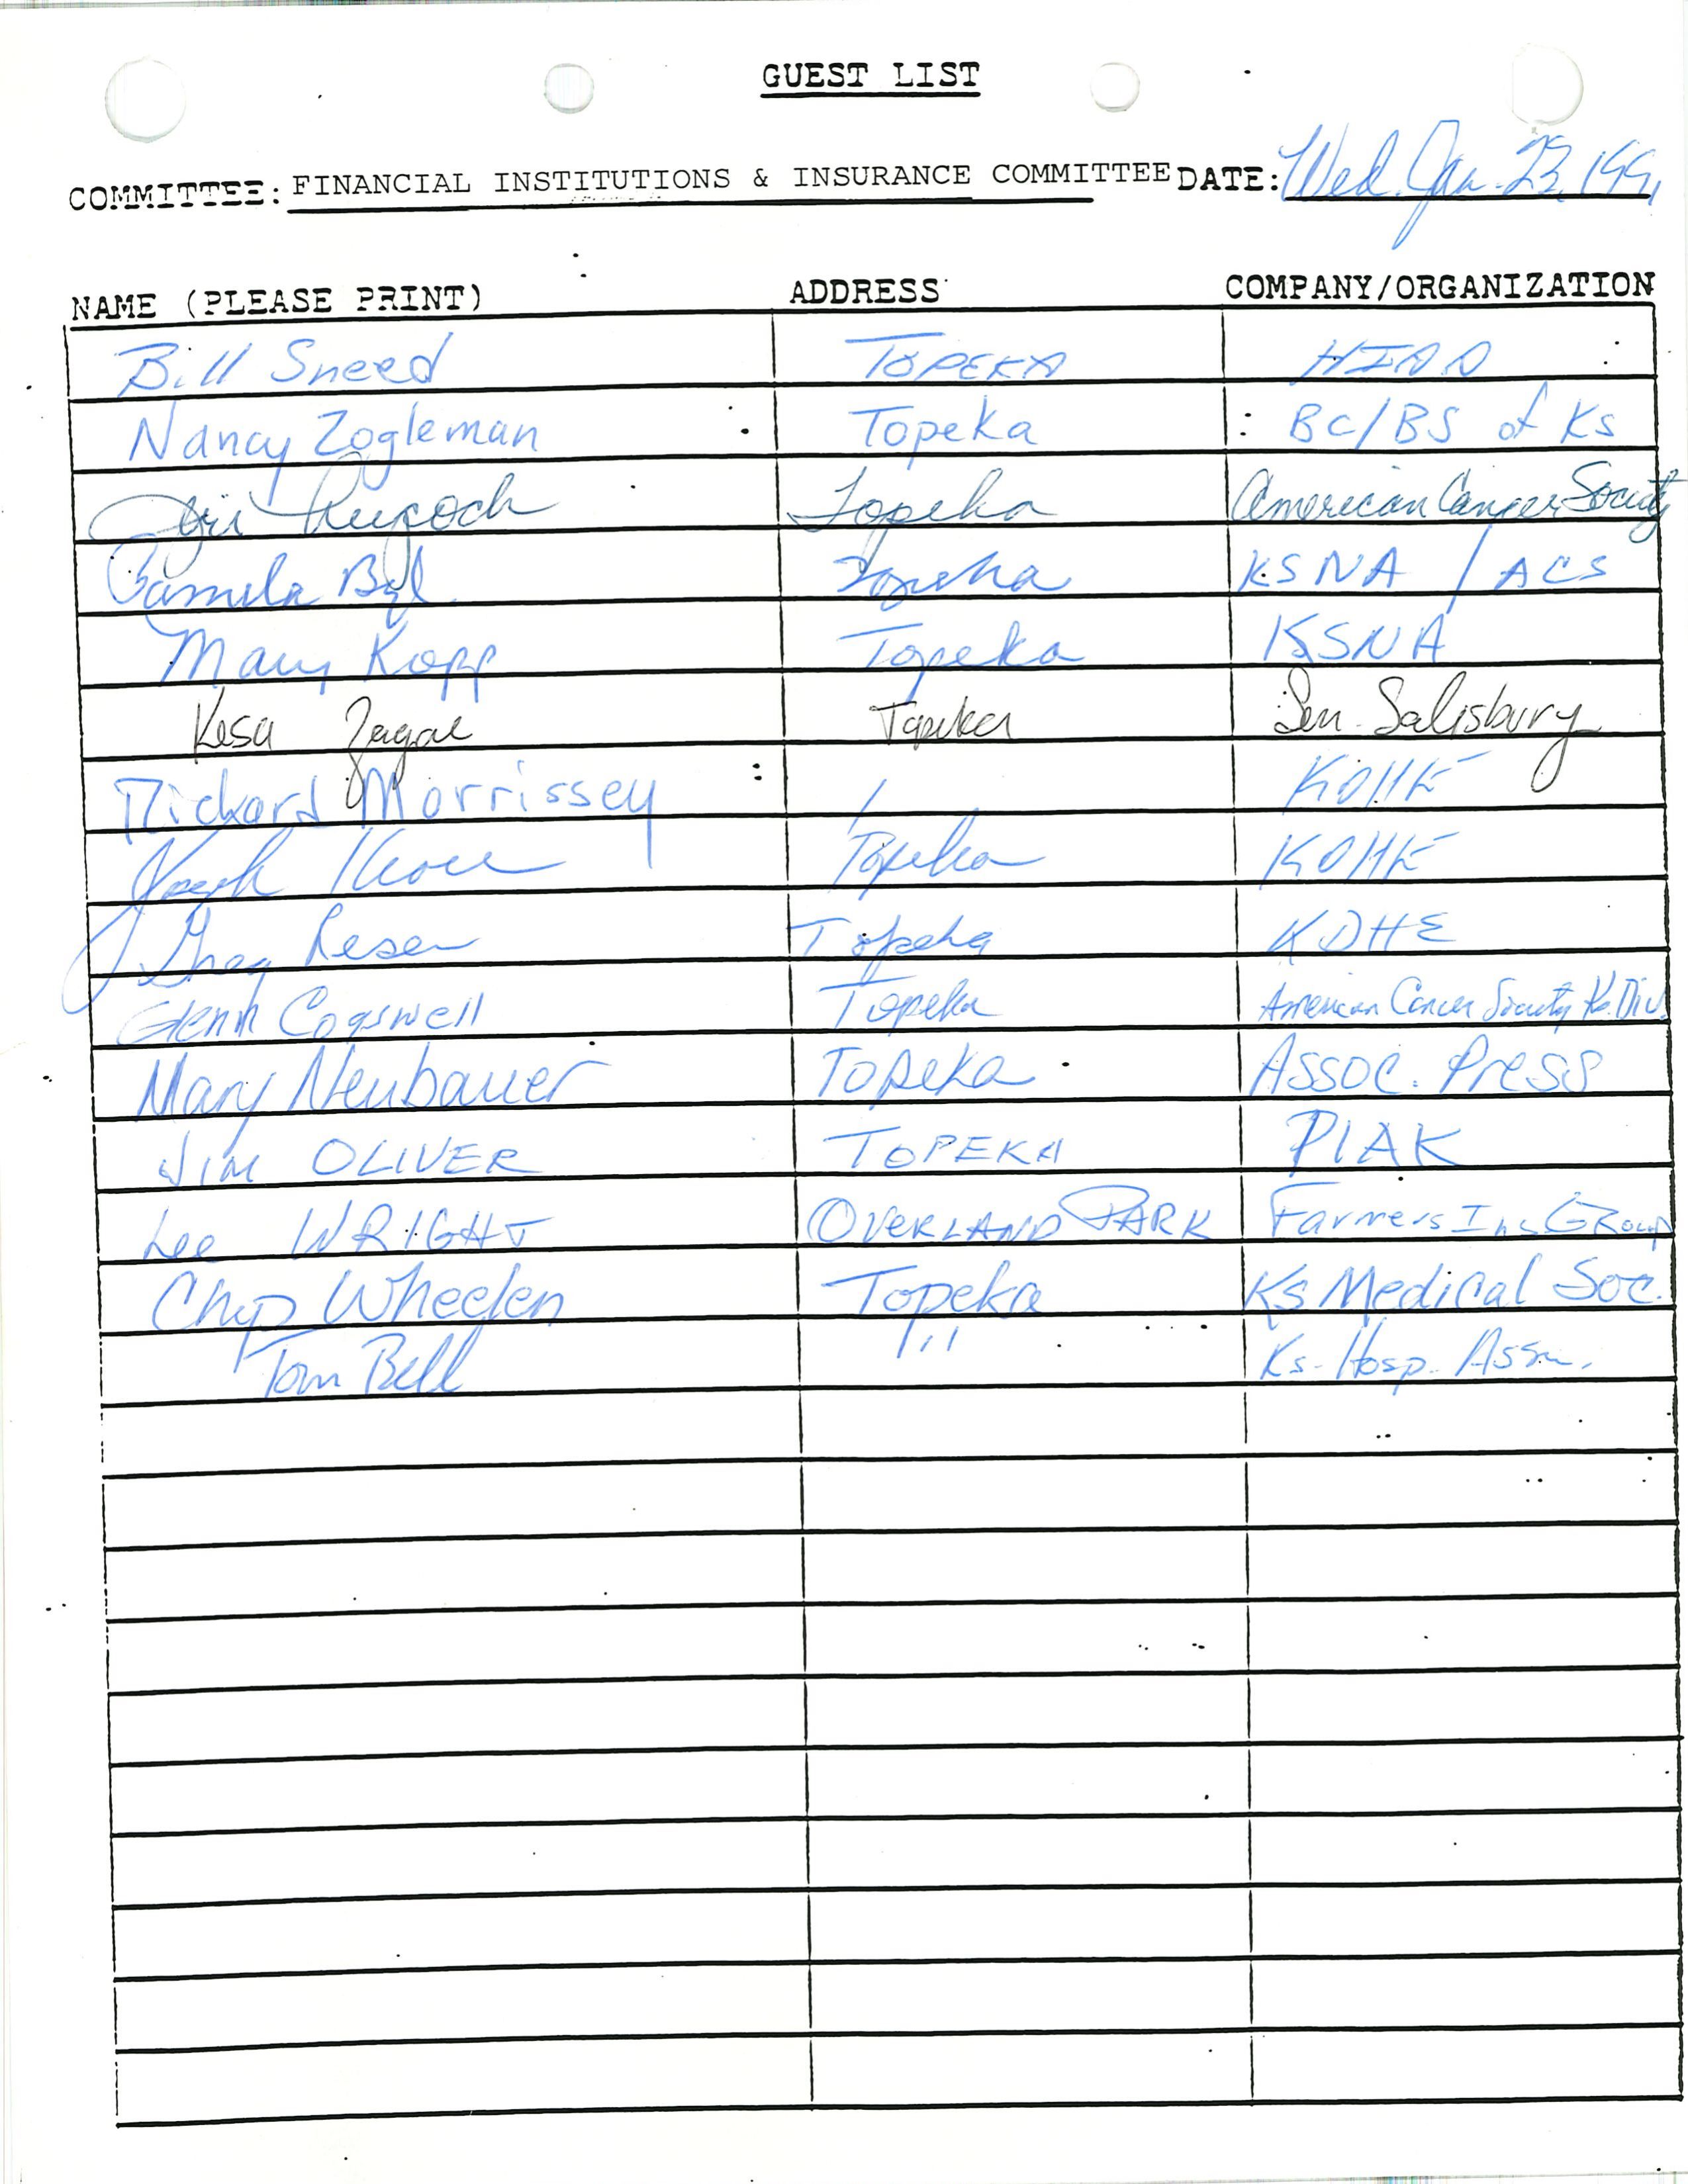 GUEST LIST
COMMITTEE: FINANCIAL INSTITUTIONS & INSURANCE COMMITTEE DATE: Wed. Jan. 23, 1991
NAME (PLEASE PRINT) ADDRESS COMPANY/ORGANIZATION
Bill Sneed TOPEKA HIAA
Nancy Zogleman Topeka BC/BS of Ks
Topeka American Cancer Society
Pamela Topeka KSNA / ACS
Mary Kopp Topeka KSNA
Topeka Sen. Salisbury
Richard Morrissey KDHE
Joseph Kroll Topeka KDHE
Greg Reser Topeka KDHE
Glenn Cogswell Topeka American Cancer Society Ks. Div.
Mary Neubauer Topeka Assoc. Press
Jim OLIVER TOPEKA PIAK
Lee WRIGHT OVERLAND PARK Farmers Ins Group
Chip Wheelen Topeka Ks Medical Soc.
Tom Bell " Ks. Hosp. Assn.